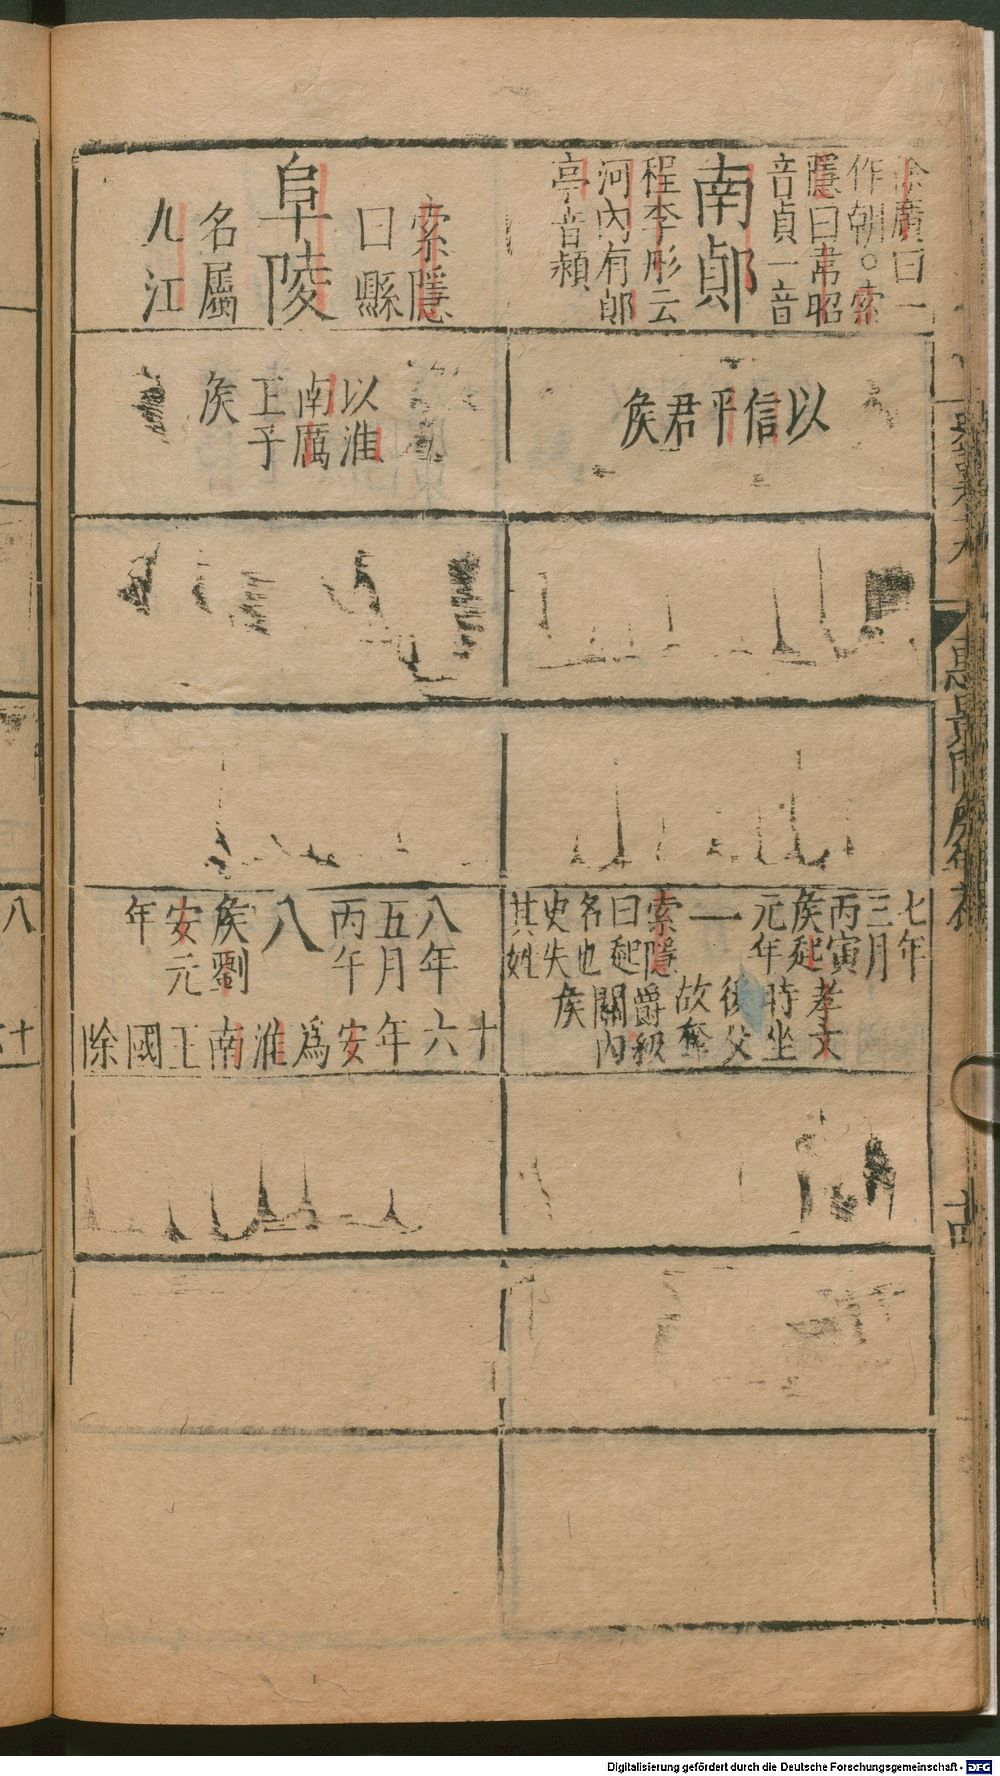 徐廣曰一
作朝。索
隱曰韋昭
音貞一音
南鄖
程李彤云
河內有鄖
亭音潁
索隱
曰縣
阜陵
名屬
九江
以信平君侯
以淮
南厲
王子
侯
七年
三月
丙寅
侯起
元年
一
索隱
曰起
名也
史失
其姓
孝文
時坐
後父
故奪
爵級
關內
侯
八年
五月
丙午
八
侯劉
安元
年
十六年安爲淮南王國除
惠景間侯年表
十四
八
十六
Digitalisierung gefördert durch die Deutsche Forschungsgemeinschaft - DFG